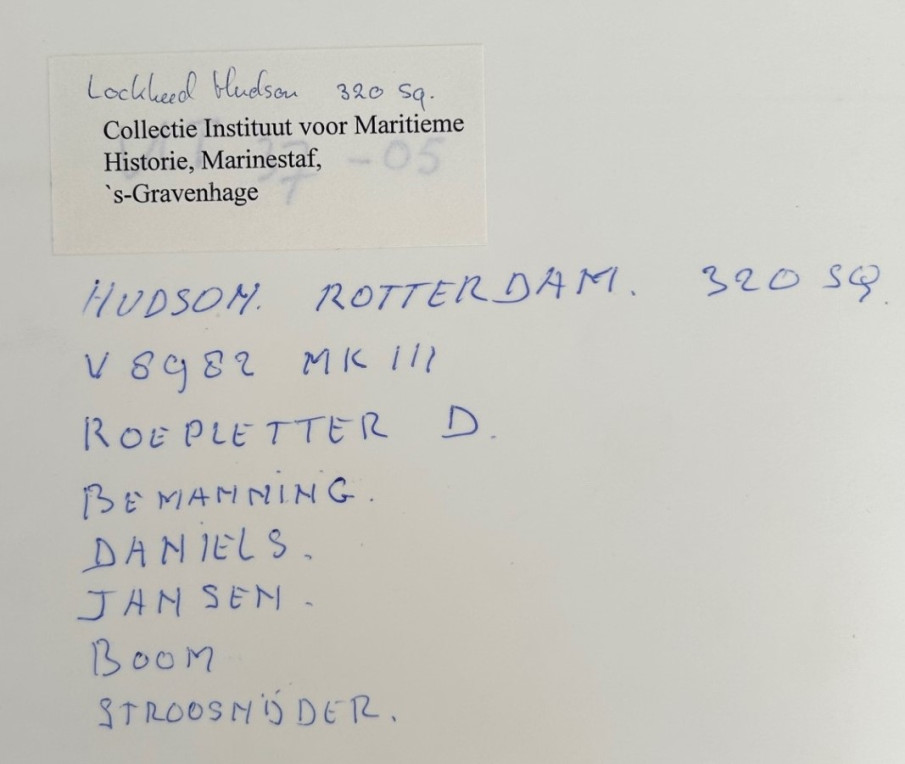 Lockheed Hudson 320 Sq.
Collectie Instituut voor Maritieme
Historie, Marinestaf,
`s-Gravenhage
HUDSON. ROTTERDAM. 320 SQ.
V 8982 MK III
ROEPLETTER D.
BEMANNING.
DANIELS.
JANSEN.
BOOM
STROOSNIJDER.